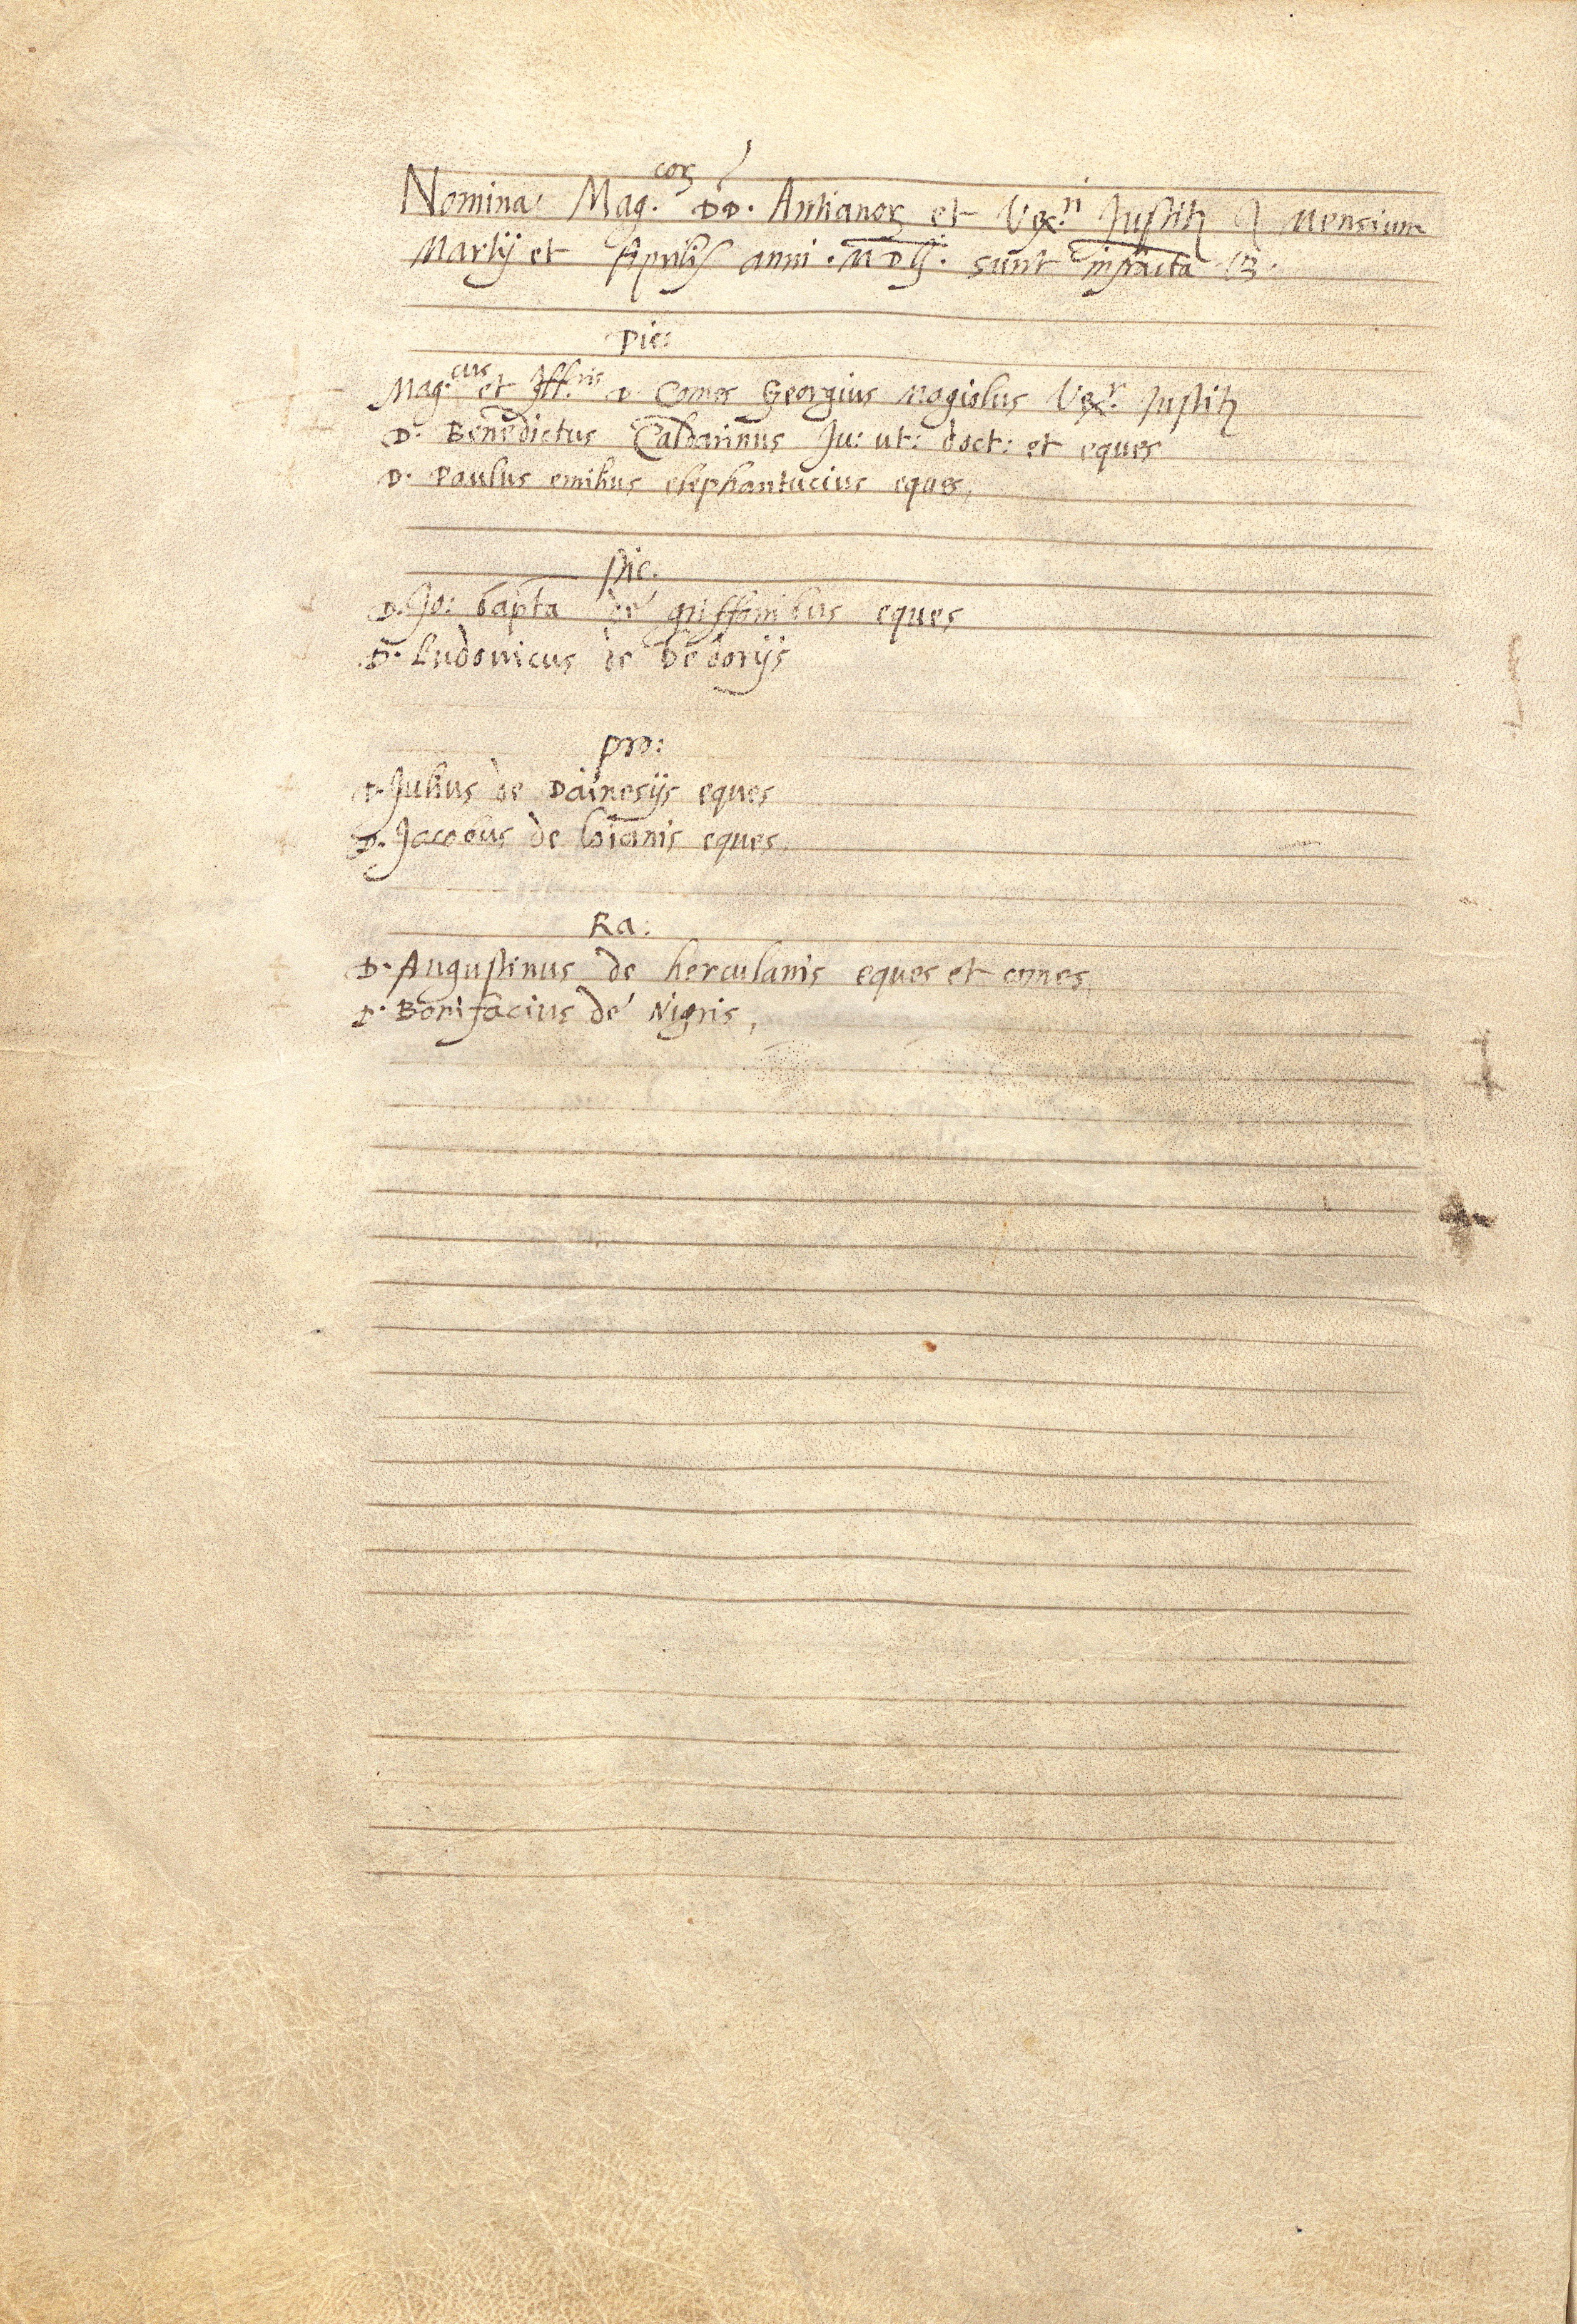 Nomina Mag.cor DD. Antianor et Vex.ri Justit mensium
Martij et Aprilis anni . MDLI . sunt infracta
Pie:
Mag.cus et Ill.ris D Comes Georgius Magiolus Vex.r Justit
D. Benedictus Caldarinus Ju: ut: doct: et eques
D. Paulus emilius elephantucius eques,
Pie.
D. Jo: bapta de griffonibus eques
D. Ludovicus de
Pro:
D. Julius de Dainesijs eques
D. Jacobus de loianis eques.
Ra:
D. Augustinus de herculanis eques et comes,
D. Bonifacius de Nigris,